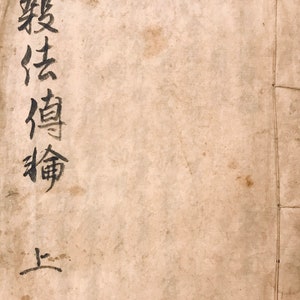 殺法傳輪 上